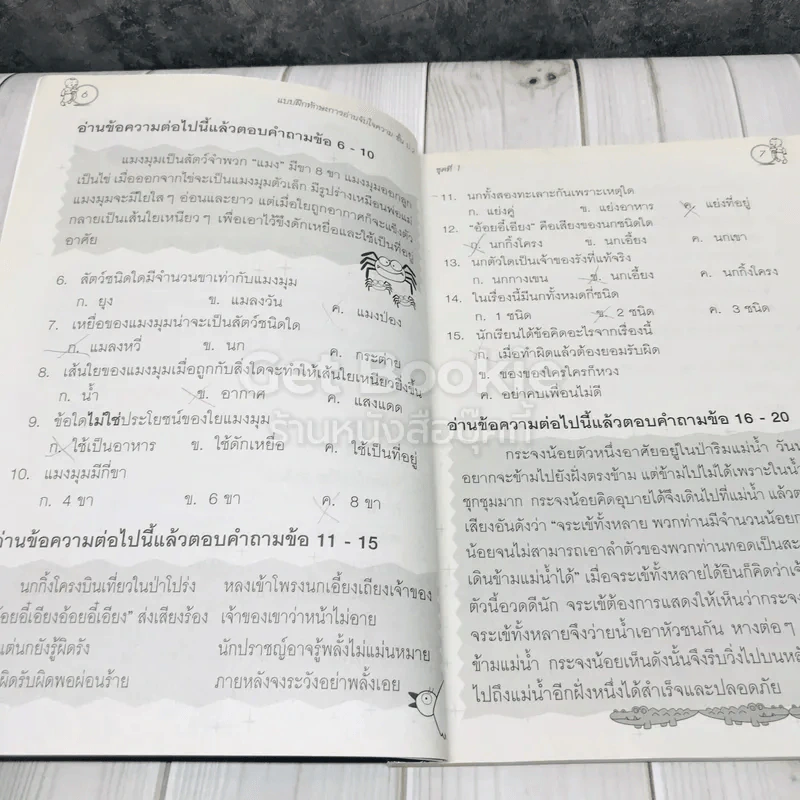 6
แบบฝึกทักษะการอ่านจับใจความ ชั้น ป.
อ่านข้อความต่อไปนี้แล้วตอบคำถามข้อ 6 - 10
แมงมุมเป็นสัตว์จำพวก “แมง” มีขา 8 ขา แมงมุมออกลูก
เป็นไข่ เมื่อออกจากไข่จะเป็นแมงมุมตัวเล็ก มีรูปร่างเหมือนพ่อแม่
แมงมุมจะมีใยใสๆ อ่อนและยาว แต่เมื่อใยถูกอากาศก็จะแข็งตัว
กลายเป็นเส้นใยเหนียวๆ เพื่อเอาไว้ขึงดักเหยื่อและใช้เป็นที่อยู่
อาศัย
6. สัตว์ชนิดใดมีจำนวนขาเท่ากับแมงมุม
ก. ยุง ข. แมลงวัน ค. แมงป่อง
7. เหยื่อของแมงมุมน่าจะเป็นสัตว์ชนิดใด
ก. แมลงหวี่ ข. นก ค. กระต่าย
8. เส้นใยของแมงมุมเมื่อถูกกับสิ่งใดจะทำให้เส้นใยเหนียวยิ่งขึ้น
ก. น้ำ ข. อากาศ ค. แสงแดด
9. ข้อใดไม่ใช่ประโยชน์ของใยแมงมุม
ก. ใช้เป็นอาหาร ข. ใช้ดักเหยื่อ ค. ใช้เป็นที่อยู่
10. แมงมุมมีกี่ขา
ก. 4 ขา ข. 6 ขา ค. 8 ขา
อ่านข้อความต่อไปนี้แล้วตอบคำถามข้อ 11 - 15
นกกิ้งโครงบินเที่ยวในป่าโปร่ง หลงเข้าโพรงนกเอี้ยงเถียงเจ้าของ
อ้อยอี้เอียงอ้อยอี้เอียง” ส่งเสียงร้อง เจ้าของเขาว่าหน้าไม่อาย
แต่นกยังรู้ผิดรัง นักปราชญ์อาจรู้พลั้งไม่แม่นหมาย
ผิดรับผิดพอผ่อนร้าย ภายหลังจงระวังอย่าพลั้งเอย
ชุดที่ 1
7
11. นกทั้งสองทะเลาะกันเพราะเหตุใด
ก. แย่งคู่ ข. แย่งอาหาร ค. แย่งที่อยู่
12. “อ้อยอี้เอียง” คือเสียงของนกชนิดใด
ก. นกกิ้งโครง ข. นกเอี้ยง ค. นกเขา
13. นกตัวใดเป็นเจ้าของรังที่แท้จริง
ก. นกกางเขน ข. นกเอี้ยง ค. นกกิ้งโครง
14. ในเรื่องนี้มีนกทั้งหมดกี่ชนิด
ก. 1 ชนิด ข. 2 ชนิด ค. 3 ชนิด
15. นักเรียนได้ข้อคิดอะไรจากเรื่องนี้
ก. เมื่อทำผิดแล้วต้องยอมรับผิด
ข. ของของใครใครก็หวง
ค. อย่าคบเพื่อนไม่ดี
อ่านข้อความต่อไปนี้แล้วตอบคำถามข้อ 16 - 20
กระจงน้อยตัวหนึ่งอาศัยอยู่ในป่าริมแม่น้ำ วันห
อยากจะข้ามไปยังฝั่งตรงข้าม แต่ข้ามไปไม่ได้เพราะในน้ำ
ชุกชุมมาก กระจงน้อยคิดอุบายได้จึงเดินไปที่แม่น้ำ แล้วต
เสียงอันดังว่า “จระเข้ทั้งหลาย พวกท่านมีจำนวนน้อยก
น้อยจนไม่สามารถเอาลำตัวของพวกท่านทอดเป็นสะ
เดินข้ามแม่น้ำได้” เมื่อจระเข้ทั้งหลายได้ยินก็คิดว่าเจ้
ตัวนี้อวดดีนัก จระเข้ต้องการแสดงให้เห็นว่ากระจง
จระเข้ทั้งหลายจึงว่ายน้ำเอาหัวชนกัน หางต่อๆ
ข้ามแม่น้ำ กระจงน้อยเห็นดังนั้นจึงรีบวิ่งไปบนหลั
ไปถึงแม่น้ำอีกฝั่งหนึ่งได้สำเร็จและปลอดภัย
Get Bookie
ร้านหนังสือบุ๊คกี้